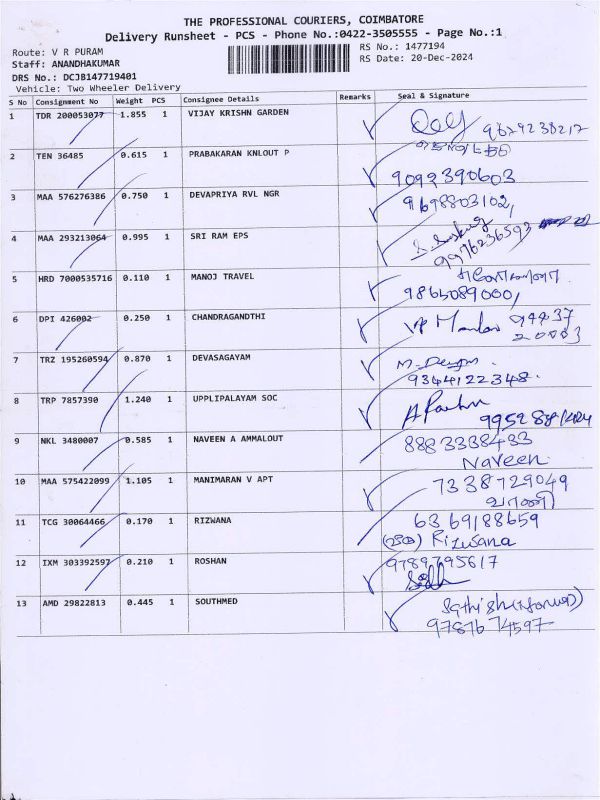 THE PROFESSIONAL COURIERS, COIMBATORE
Delivery Runsheet - PCS - Phone No.:0422-3505555 - Page No.:1
Route: V R PURAM
RS No.: 1477194
Staff: ANANDHAKUMAR
RS Date: 20-Dec-2024
DRS No.: DCJB147719401
Vehicle: Two Wheeler Delivery
S No Consignment No Weight PCS Consignee Details Remarks Seal & Signature
1 TDR 200053077 1.855 1 VIJAY KRISHN GARDEN
2 TEN 36485 0.615 1 PRABAKARAN KNLOUT P
9092390603
3 MAA 576276386 0.750 1 DEVAPRIYA RVL NGR 9698803102,
4 MAA 293213064 0.995 1 SRI RAM EPS
9976236593
5 HRD 7000535716 0.110 1 MANOJ TRAVEL
9865089000,
6 DPI 426002 0.250 1 CHANDRAGANDTHI
7 TRZ 195260594 0.870 1 DEVASAGAYAM
9344122348.
8 TRP 7857390 1.240 1 UPPLIPALAYAM SOC
9 NKL 3480007 0.585 1 NAVEEN A AMMALOUT 8883338433
Naveen
10 MAA 575422099 1.105 1 MANIMARAN V APT 7338729049
வாணி
11 TCG 30064466 0.170 1 RIZWANA 6369188659
Rizwana
12 IXM 303392597 0.210 1 ROSHAN 9789795617
13 AMD 29822813 0.445 1 SOUTHMED Sathish
9787674597